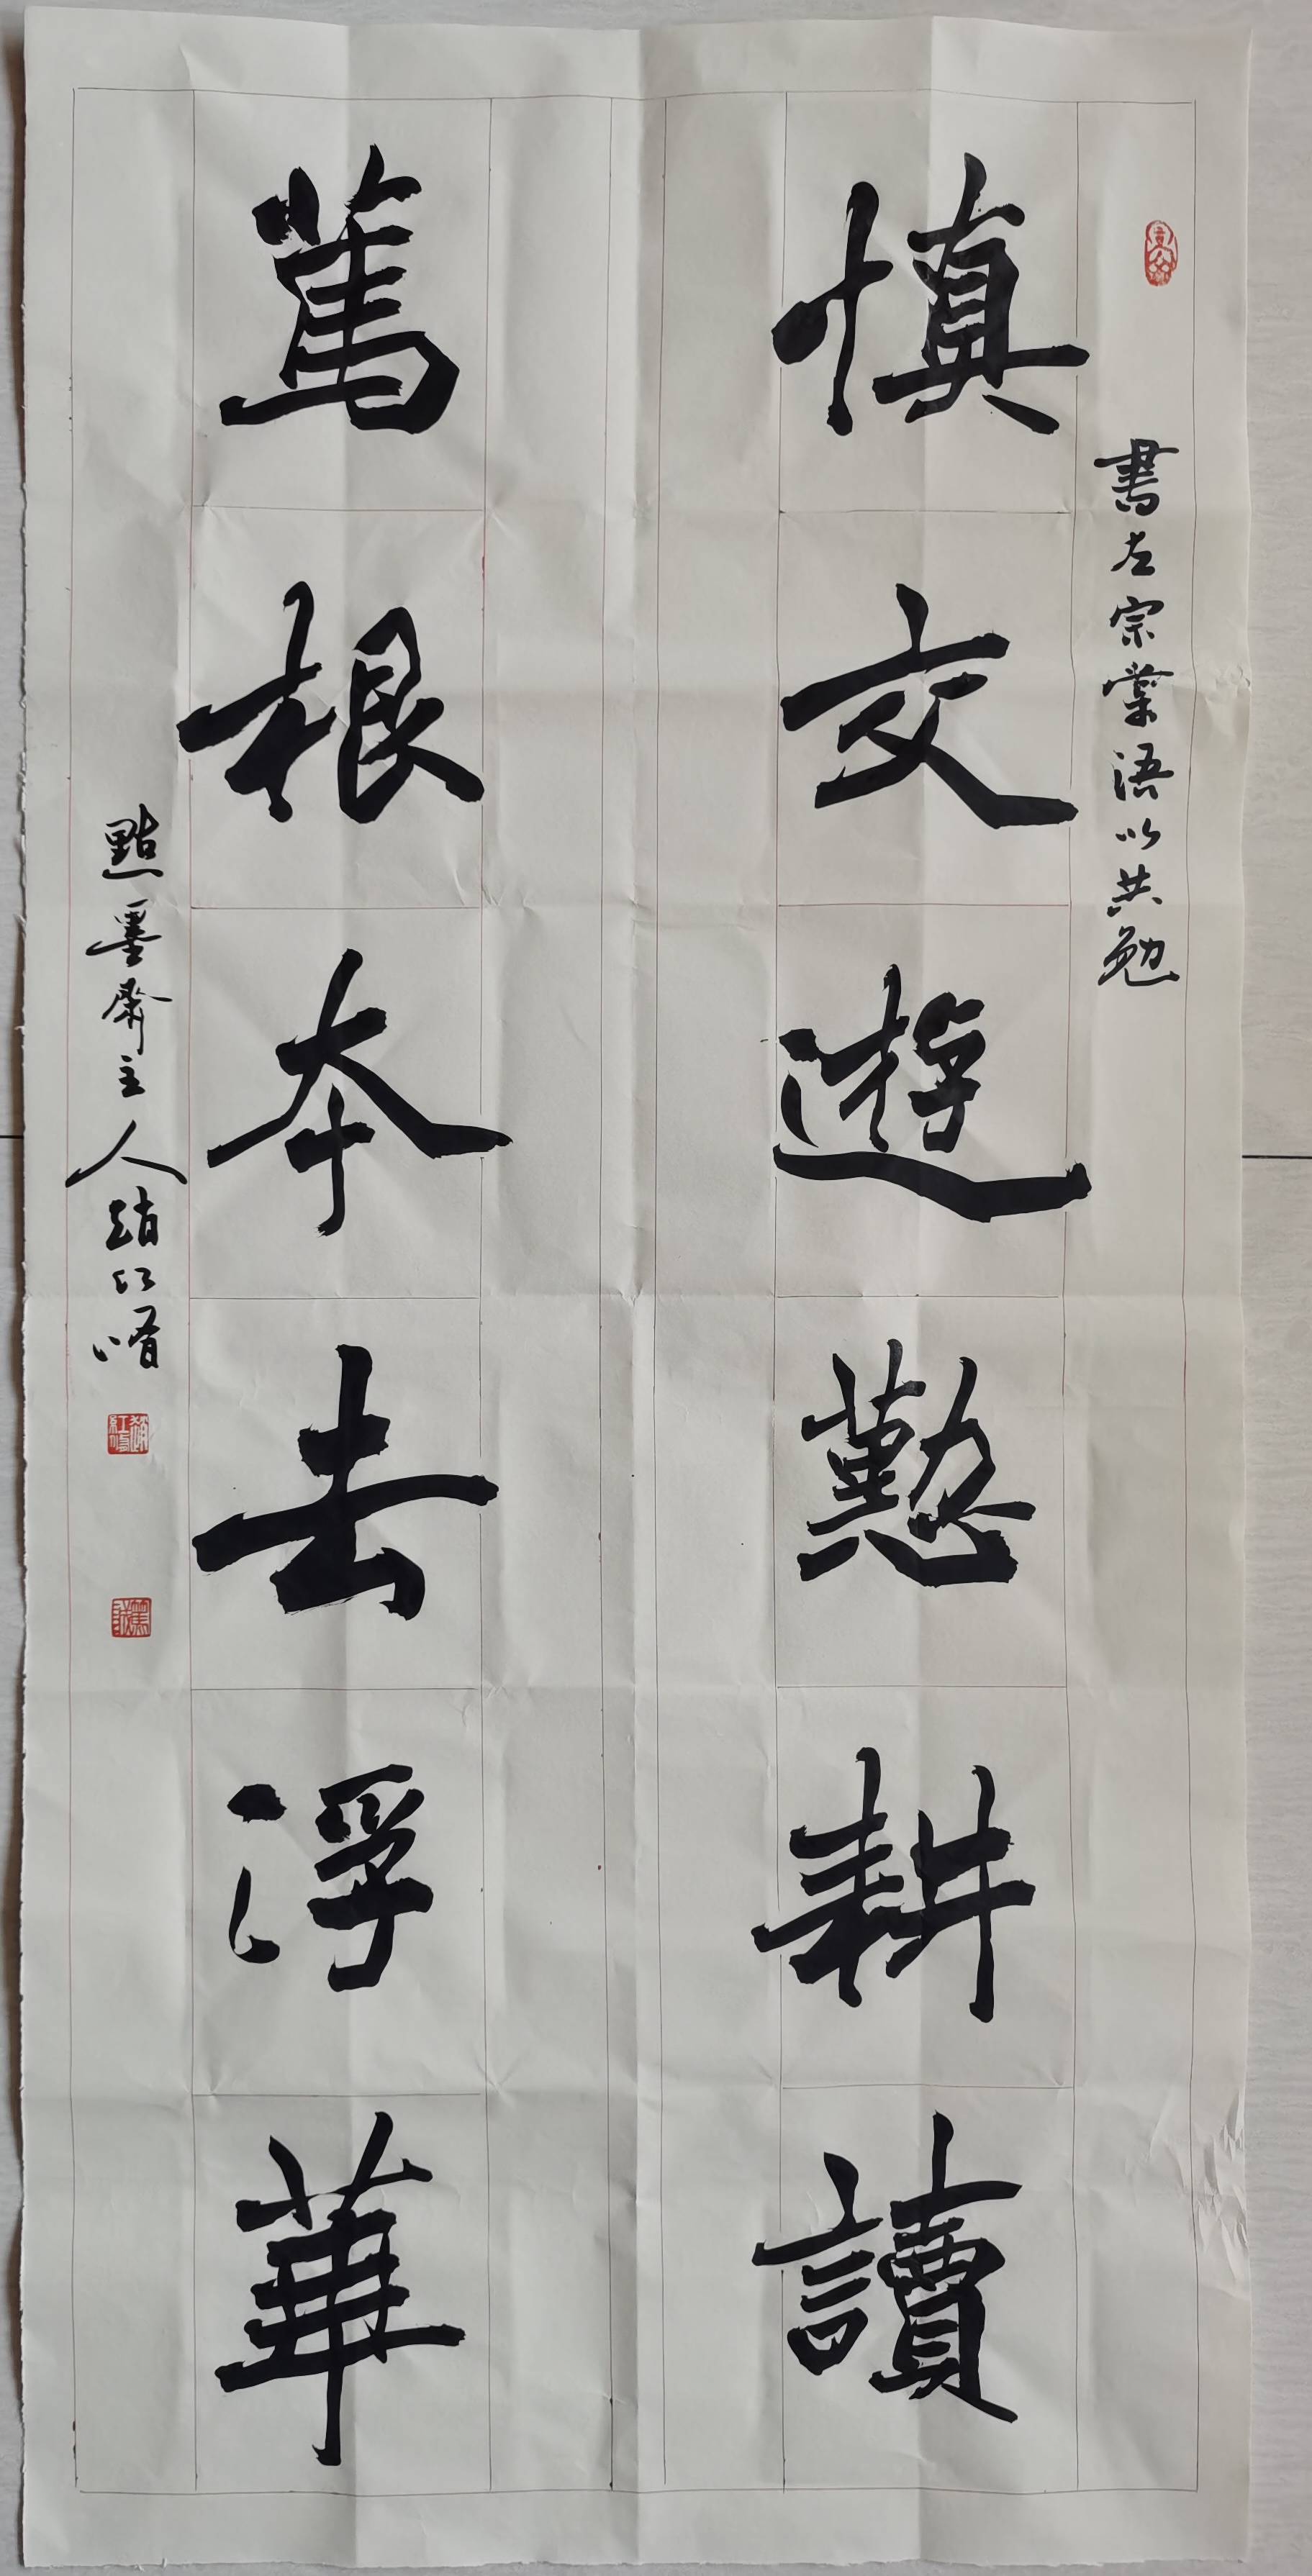 書左宗棠語以共勉
慎交遊懃耕讀
篤根本去浮華
點墨齋主人趙紅